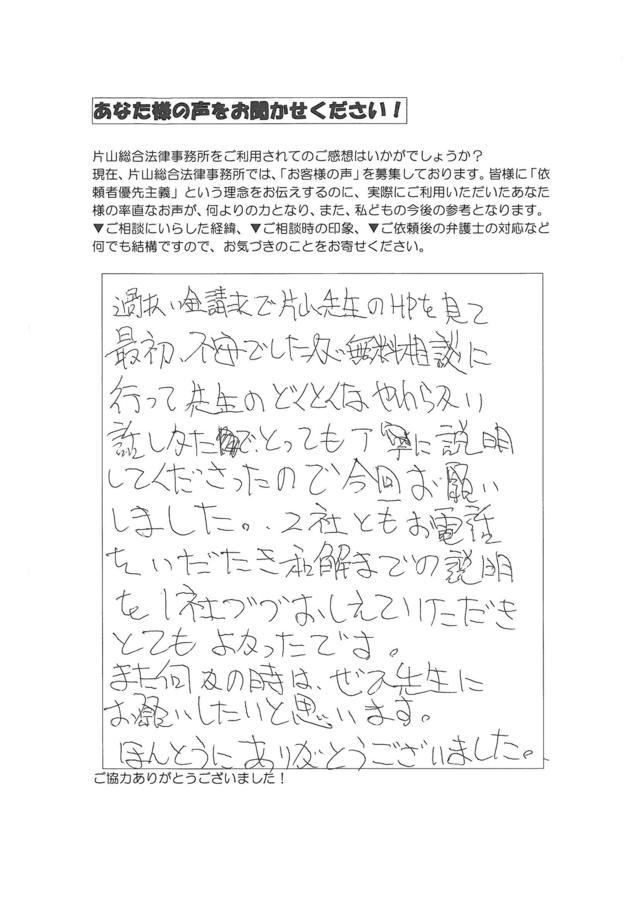 あなた様の声をお聞かせください！
片山総合法律事務所をご利用されてのご感想はいかがでしょうか？
現在、片山総合法律事務所では、「お客様の声」を募集しております。皆様に「依
頼者優先主義」という理念をお伝えするのに、実際にご利用いただいたあなた
様の率直なお声が、何よりの力となり、また、私どもの今後の参考となります。
▼ご相談にいらした経緯、▼ご相談時の印象、▼ご依頼後の弁護士の対応など
何でも結構ですので、お気づきのことをお寄せください。
過払い金請求で片山先生のHPを見て
最初、不安でしたが無料相談に
行って先生のどくとくなやわらかい
話しかたで、とっても丁寧に説明
してくださったので今回お願い
しました。２社ともお電話
をいだたき和解までの説明
を１社づづおしえていただき
とてもよかったです。
また何かの時は、ぜひ先生に
お願いしたいと思います。
ほんとうにありがとうございました。
ご協力ありがとうございました！